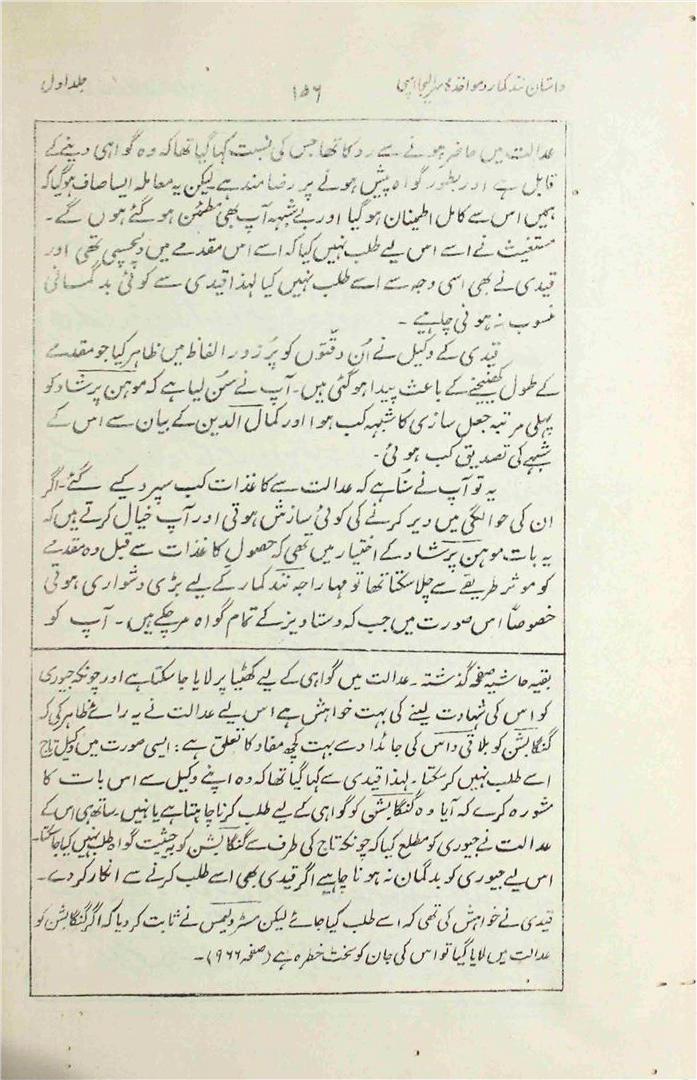 داستان نند کمار و مواخذۂ سر ایلیجا امپی ۱۵۶ جلد اول
عدالت میں حاضر ہونے سے روکا تھا جس کی نسبت کہا گیا تھا کہ وہ گواہی دینے کے
قابل ہے اور بطور گواہ پیش ہونے پر رضامند ہے لیکن یہ معاملہ ایسا صاف ہو گیا کہ
ہمیں اس سے کامل اطمینان ہو گیا اور بے شبہہ آپ بھی مطمئن ہو گئے ہوں گے۔
مستغیث نے اسے اس لیے طلب نہیں کیا کہ اسے اس مقدمے میں دلچسپی تھی اور
قیدی نے بھی اسی وجہ سے اسے طلب نہیں کیا لہذا قیدی سے کوئی بدگمانی
منسوب نہ ہونی چاہیے۔
قیدی کے وکیل نے اُن دقّتوں کو پُر زور الفاظ میں ظاہر کیا جو مقدمے
کے طول کھینچنے کے باعث پیدا ہو گئی ہیں۔ آپ نے سُن لیا ہے کہ موہن پرشاد کو
پہلی مرتبہ جعل سازی کا شبہہ کب ہوا اور کمال الدین کے بیان سے اس کے
شبہے کی تصدیق کب ہوئی۔
یہ تو آپ نے سُنا ہے کہ عدالت سے کاغذات کب سپرد کیے گئے۔ اگر
ان کی حوالگی میں دیر کرنے کی کوئی سازش ہوتی اور آپ خیال کرتے ہیں کہ
یہ بات موہن پرشاد کے اختیار میں تھی کہ حصولِ کاغذات سے قبل وہ مقدمے
کو موثر طریقے سے چلا سکتا تھا تو مہاراجہ نند کمار کے لیے بڑی دشواری ہوتی
خصوصاً اس صورت میں جب کہ دستاویز کے تمام گواہ مر چکے ہیں۔ آپ کو
بقیہ حاشیہ صفحہ گذشتہ۔ عدالت میں گواہی کے لیے کھٹیا پر لایا جا سکتا ہے اور چونکہ جیوری
کو اس کی شہادت لینے کی بہت خواہش ہے اس لیے عدالت نے یہ رائے ظاہر کی کہ
گنگابشن کو بلاقی داس کی جائداد سے بہت کچھ مفاد کا تعلق ہے: ایسی صورت میں وکیل تاج
اسے طلب نہیں کر سکتا۔ لہذا قیدی سے کہا گیا تھا کہ وہ اپنے وکیل سے اس بات کا
مشورہ کرے کہ آیا وہ گنگابشن کو گواہی کے لیے طلب کرنا چاہتا ہے یا نہیں۔ ساتھ ہی اس کے
عدالت نے جیوری کو مطلع کیا کہ چونکہ تاج کی طرف سے گنگابشن کو بحیثیت گواہ طلب نہیں کیا جا سکتا۔
اس لیے جیوری کو بدگمان نہ ہونا چاہیے اگر قیدی بھی اسے طلب کرنے سے انکار کر دے۔
قیدی نے خواہش کی تھی کہ اسے طلب کیا جائے لیکن مسٹر ولیمس نے ثابت کر دیا کہ اگر گنگابشن کو
عدالت میں لایا گیا تو اس کی جان کو سخت خطرہ ہے (صفحہ ۹۶۶)۔